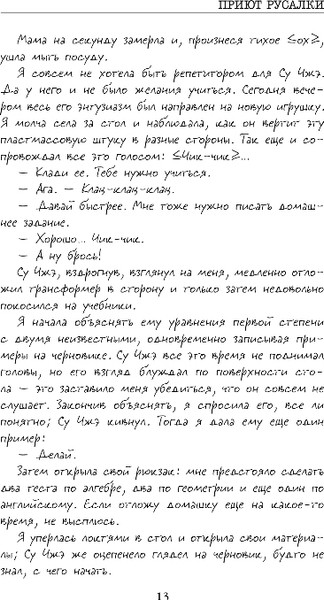 ПРИЮТ РУСАЛКИ
Мама на секунду замерла и, произнеся тихое ≤ох≥,
ушла мыть посуду.
Я совсем не хотела быть репетитором для Су Чжэ.
Да у него и не было желания учиться. Сегодня вече-
ром весь его энтузиазм был направлен на новую игрушку.
Я молча села за стол и наблюдала, как он вертит эту
пластмассовую штуку в разные стороны. Так еще и со-
провождал все это голосом: ≤Чик-чик≥...
— Клади ее. Тебе нужно учиться.
— Ага. — Клац-клац-клац.
— Давай быстрее. Мне тоже нужно писать домаш-
нее задание.
— Хорошо... Чик-чик.
— А ну брось!
Су Чжэ, вздрогнув, взглянул на меня, медленно отло-
жил трансформер в сторону и только затем недовольно
покосился на учебники.
Я начала объяснять ему уравнения первой степени
с двумя неизвестными, одновременно записывая при-
меры на черновике. Су Чжэ все это время не поднимал
головы, но его взгляд блуждал по поверхности сто-
ла — это заставило меня убедиться, что он совсем не
слушает. Закончив объяснять, я спросила его, все ли
понятно; Су Чжэ кивнул. Тогда я дала ему еще один
пример:
— Делай.
Затем открыла свой рюкзак: мне предстояло сделать
два теста по алгебре, два по геометрии и еще один по
английскому. Если отложу домашку еще на какое-то
время, не высплюсь.
Я уперлась локтями в стол и открыла свои материа-
лы; Су Чжэ же оцепенело глядел на черновик, будто не
знал, с чего начать.
13